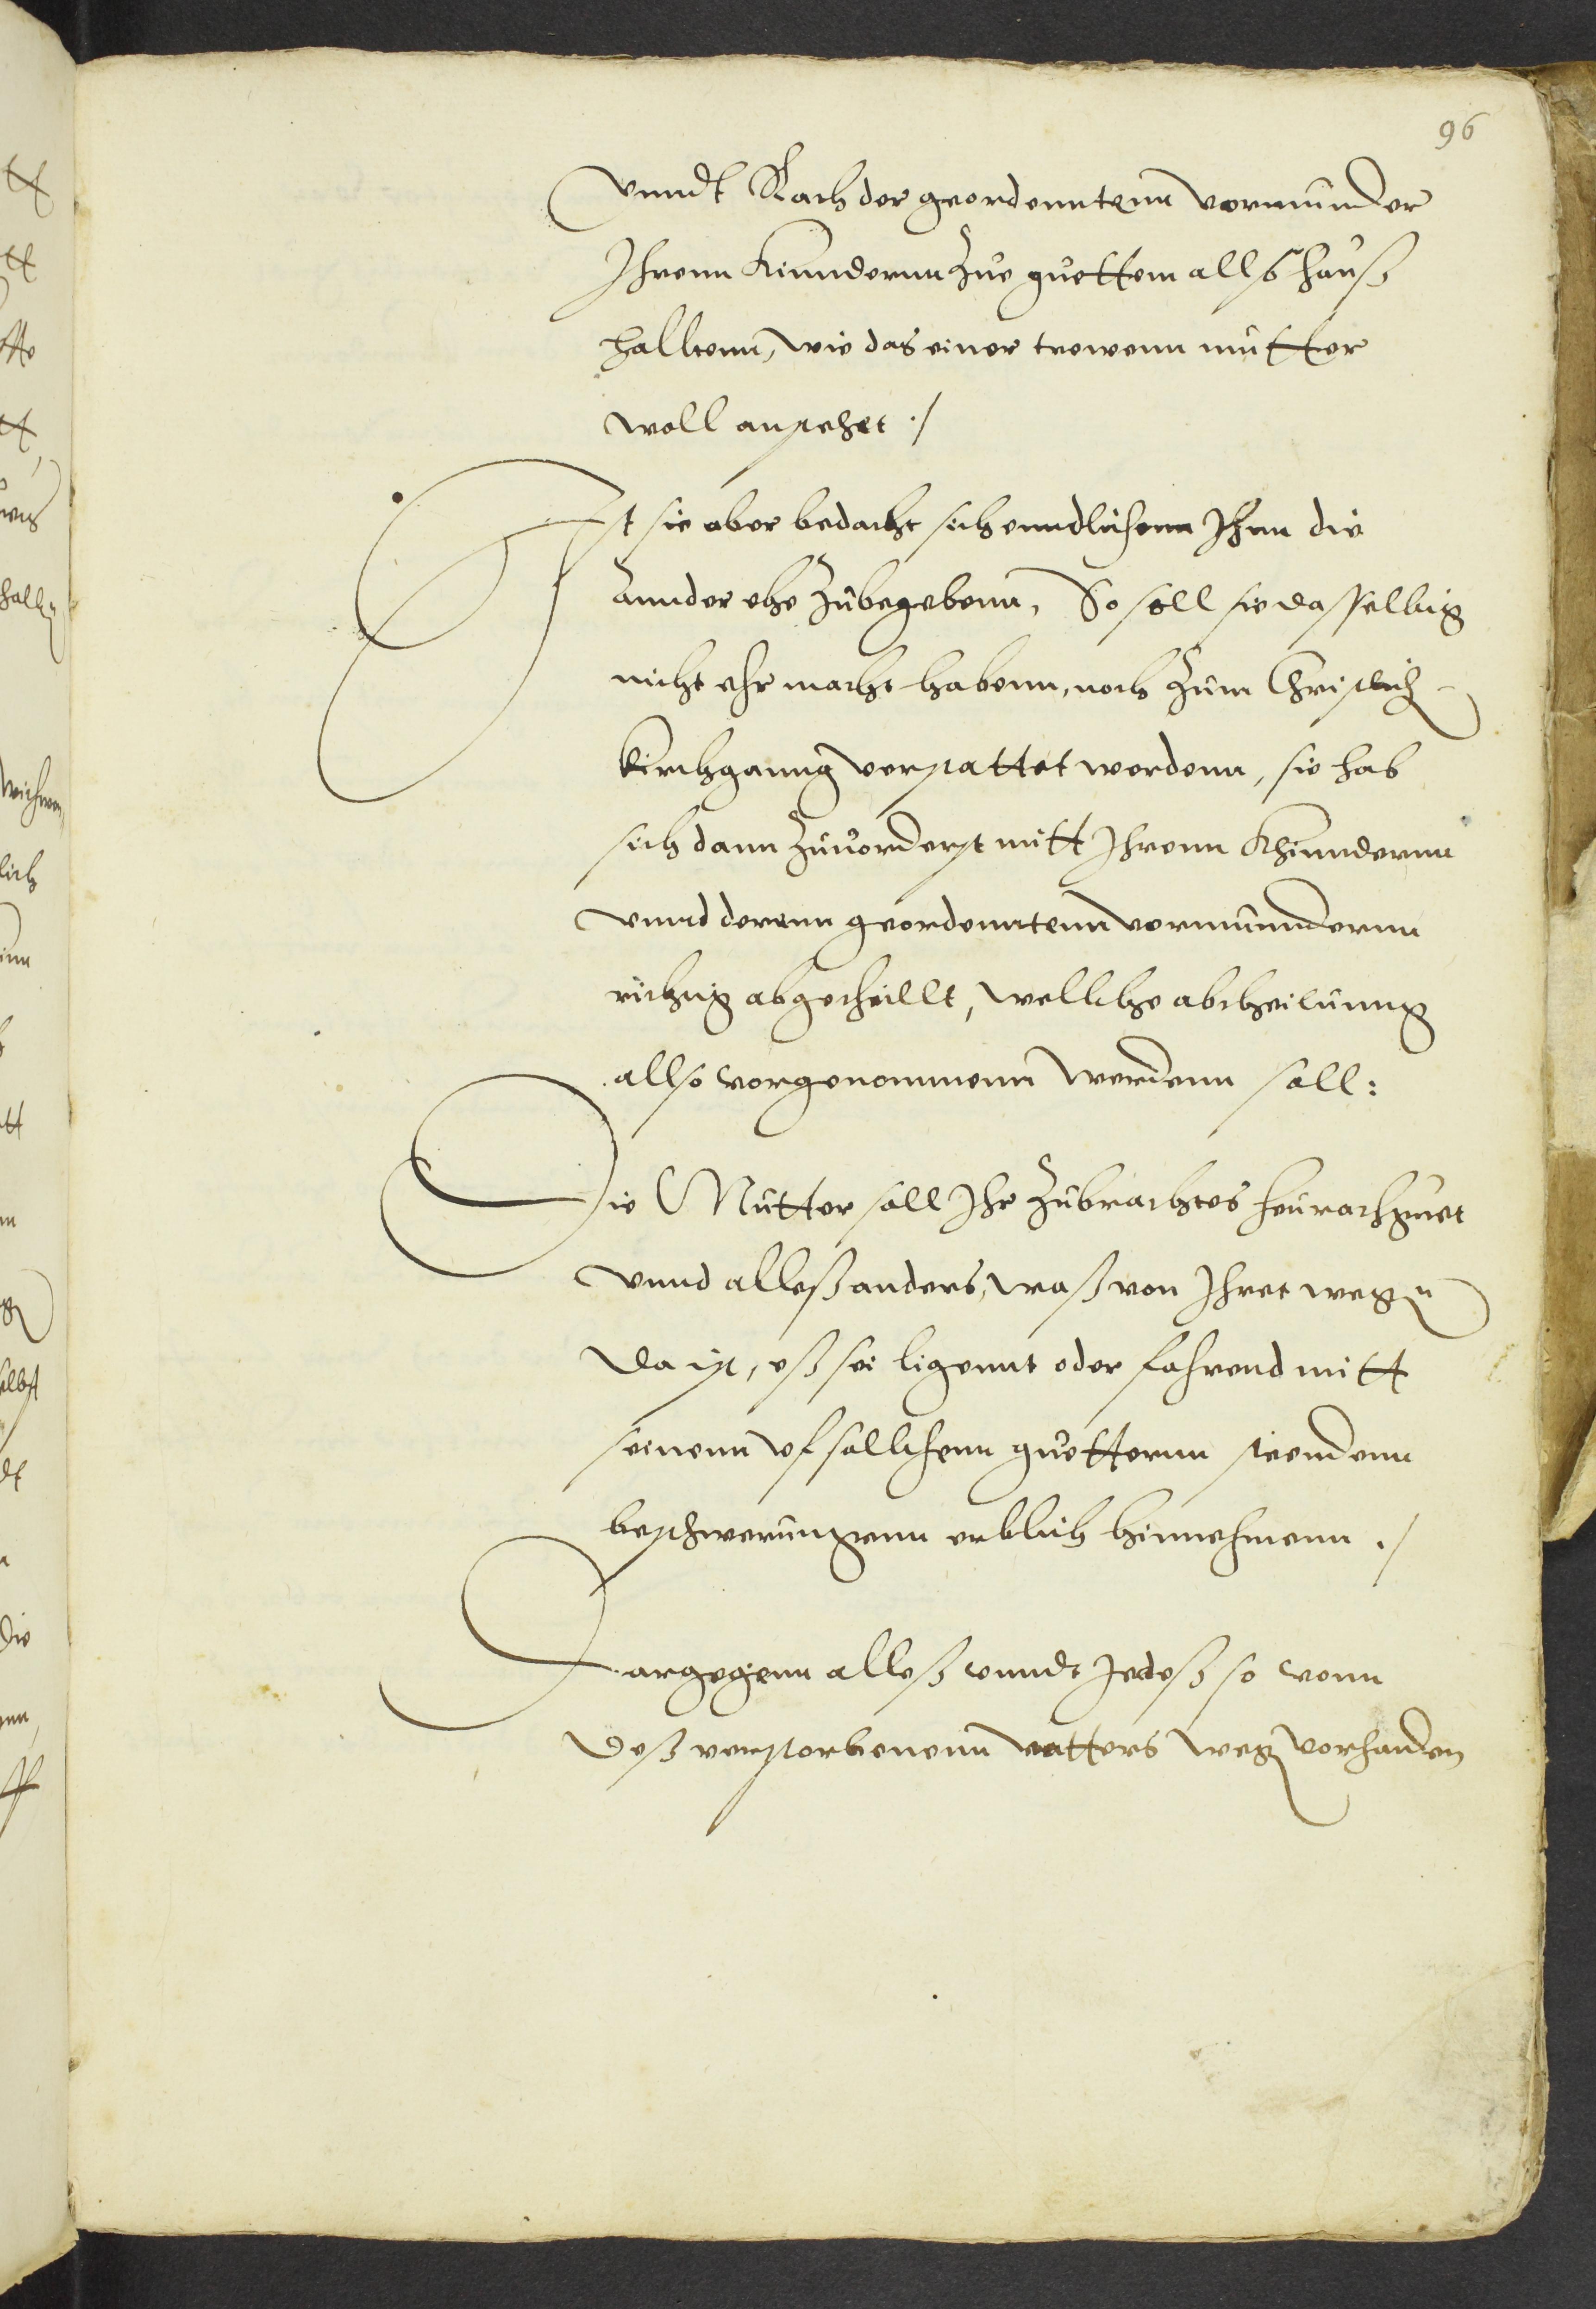 96
vnnd Rath der geordenntenn vormünder
Ihrenn Kinndernn zue guettem allso hauß
halltenn, wie das einer trewenn mutter
woll anstehet ./
Ist sie aber bedacht sich enndlichenn Ihnn die
annder ehe zubegebenn, So soll sie dasselbig
nicht ehr macht habenn, noch zum Christlich
kirchganng verstattet werdenn, sie hab
sich dann zuuorderst mitt Ihrenn Khinndernn
vnnd derenn geordenntenn vormünndernn
richtig abgetheillt, wellche abtheilunng
allso vorgenommenn werdenn soll:
Die Mutter soll Ihr zubrachtes heurathguet
vnnd alleß anders, waß von Ihret wegn
da ist, eß sei ligennt oder fahrend mitt
seinenn vf sollchenn guetternn steendenn
beschwerungenn erblich hinnehmenn ./
Dargegenn alleß vnndt Jedeß so vonn
deß verstorbenenn vatters weg vorhanden